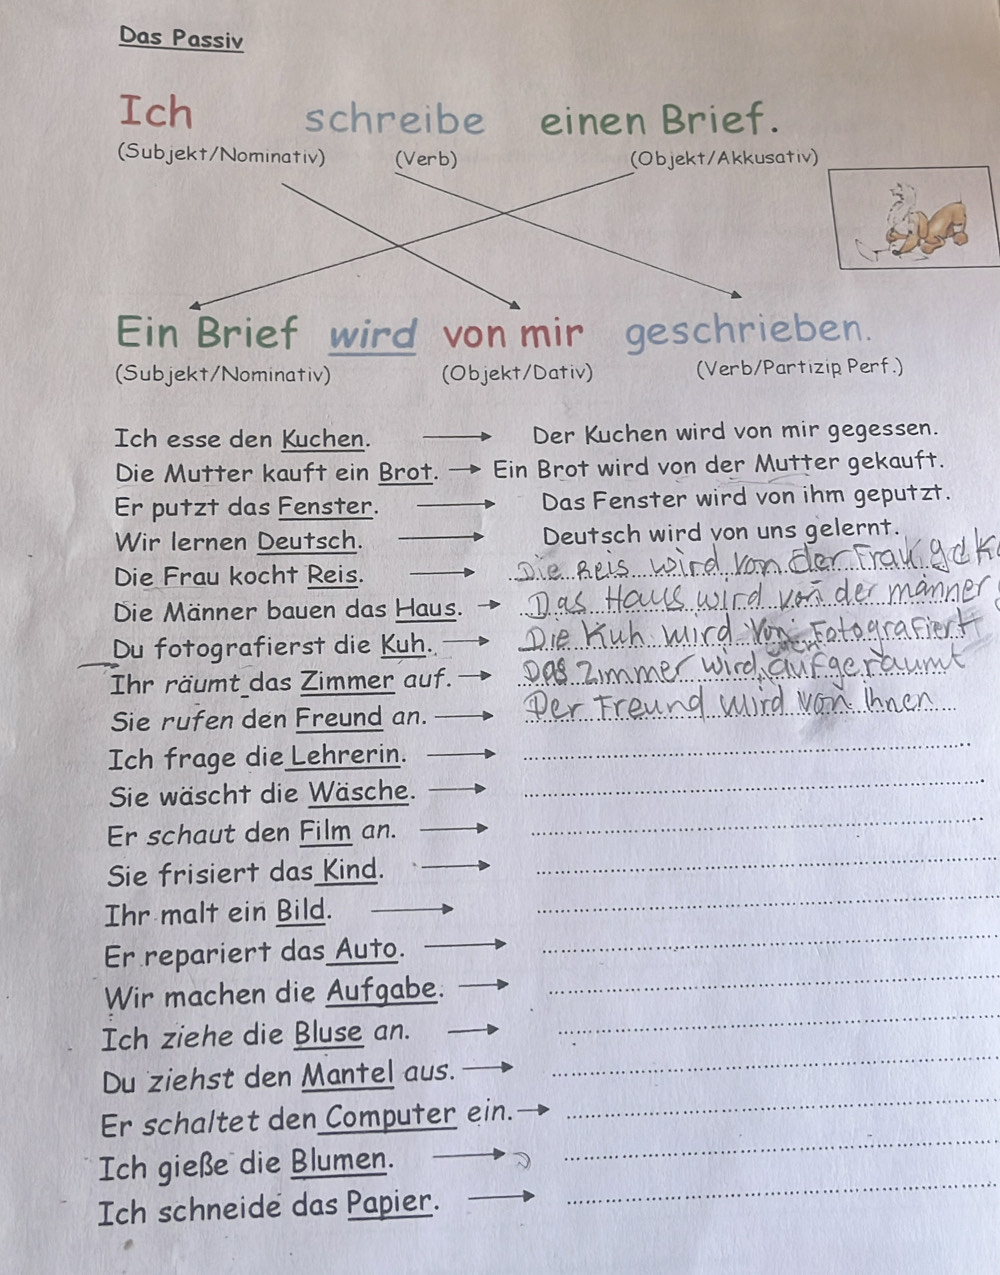 Das Passiv
Ich schreibe einen Brief.
(Subjekt/Nominativ) (Verb) (Objekt/Akkusativ)
Ein Brief wird von mir geschrieben.
(Subjekt/Nominativ) (Objekt/Dativ) (Verb/Partizip Perf.)
Ich esse den Kuchen. Der Kuchen wird von mir gegessen.
Die Mutter kauft ein Brot. Ein Brot wird von der Mutter gekauft.
Er putzt das Fenster. Das Fenster wird von ihm geputzt.
Wir lernen Deutsch. Deutsch wird von uns gelernt.
Die Frau kocht Reis. Die Reis wird von der Frau
Die Männer bauen das Haus. Das Haus wird von der männer
Du fotografierst die Kuh. Die Kuh wird von Fotografiert
Ihr räumt das Zimmer auf. Das Zimmer wird aufgeräumt
Sie rufen den Freund an. Der Freund wird von ihnen
Ich frage die Lehrerin.
Sie wäscht die Wäsche.
Er schaut den Film an.
Sie frisiert das Kind.
Ihr malt ein Bild.
Er repariert das Auto.
Wir machen die Aufgabe.
Ich ziehe die Bluse an.
Du ziehst den Mantel aus.
Er schaltet den Computer ein.
Ich gieße die Blumen.
Ich schneide das Papier.